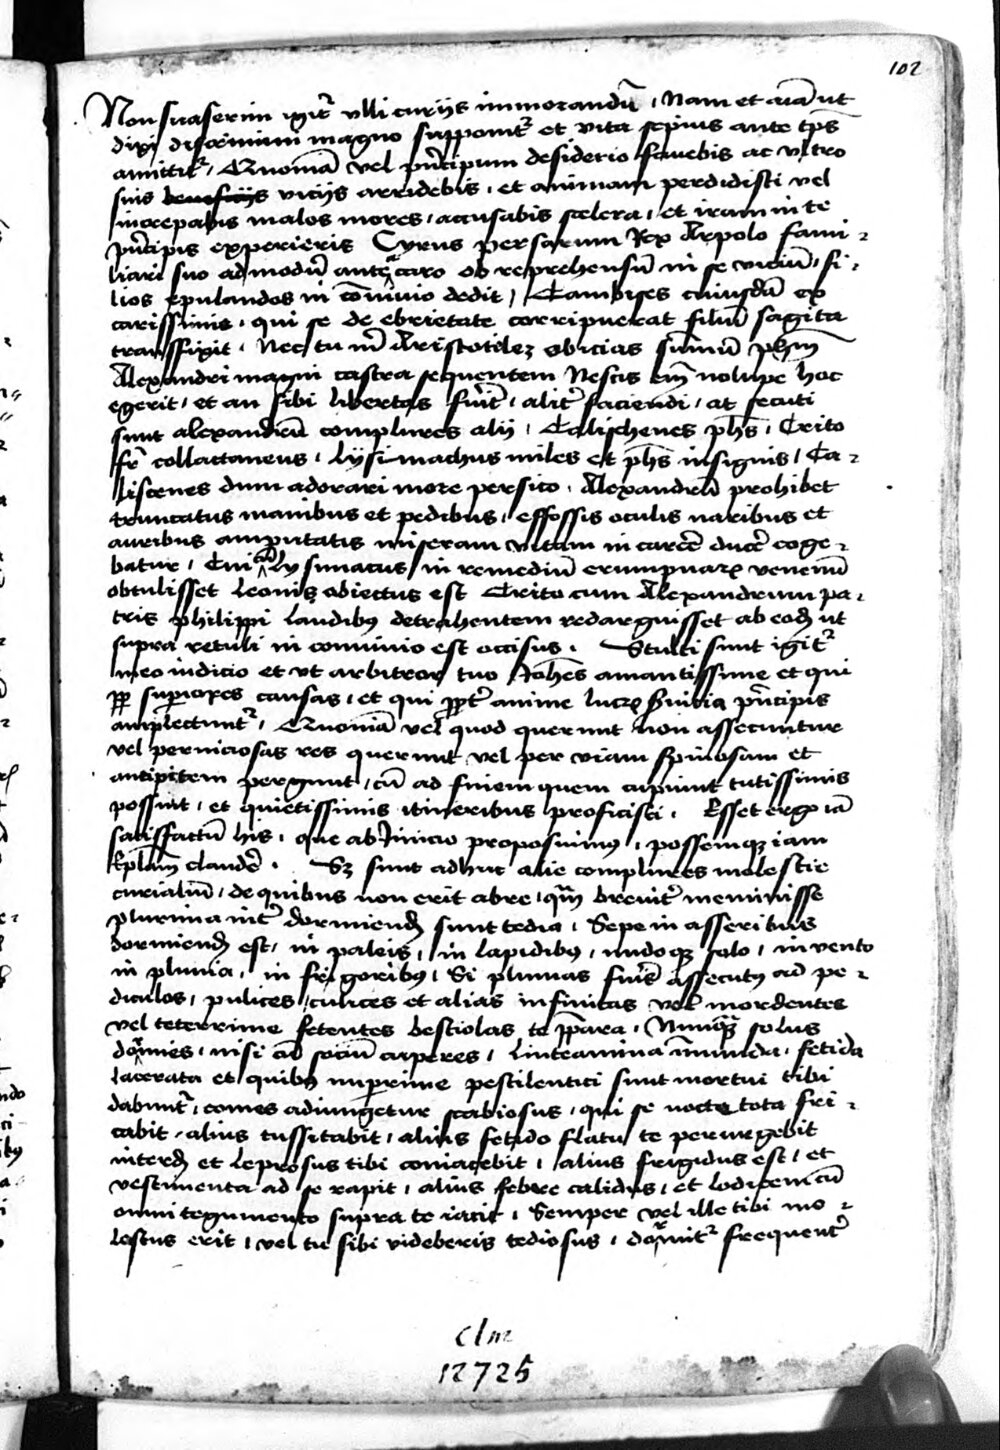 102
Non suaserim igit᷑ ulli curijs inmorandū , Nam et aīa ut
dixi discrimini magno supponit᷑ et vita sepius ante tp̄s
amittit᷑ , Quoniā vel pͥncipum desiderio favebis ac ultro
suis beneficijs vicijs arridebis , et animam perdidisti vel
increpabis malos mores , accusabis scelera , et iram in te
pͥncipis experieris Cyrus persarum Rex Arpolo fami-
liari suo admodū antea caro ob reprehensū in se viciū , fi-
lios epulandos in cōnivio dedit , Cambises cuiusdā ex
carissimis , qui se de ebrietate corripuerat filiū sagita
transfixit . Nec tu m̄ Aristotilez obicias sūmū ph̄m
Alexandri magni castra sequentem Nescis em̄ volupe hoc
egerit , et an sibi libertas fuit , alit᷑ faciendi , at secuti
sunt alexandrū complures alij , Calischenes ph̄s , Crito
fr̄ collactaneus , Lysimachus miles et ph̄s insignis , Ca-
liscenes dum adorari more persico . Alexandrū prohibet
truncatus manibus et pedibus , effossis oculis naribus et
auribus amputatis miseram vitam in carcē ducē coge-
batur , Cui cū lysimacus in remediū erumpnarꝝ venenū
obtulisset Leonis obiectus est Crito cum Alexandrum pa-
tris philippi laudibus detrahentem redarguisset ab eodē ut
supra retuli in convivio est occisus . Stulti sunt igit᷑
meo iudicio et ut arbitror tuo Joh̄es amantissime et qui
ꝓp superiores causas , et qui ꝓpt᷑ anime lucrꝝ s̄vitia pͥncipis
amplectunt᷑ , Quoniā vel quod querunt non assecuntur
vel perniciosas res querunt vel per viam spinosam et
ancipitem pergunt , cū ad finem quem cupiunt tutissimis
possint , et quietissimis itineribus proficisci . Esset ergo iā
satisfactū his , que ab inicio proposuimus , possemqꝫ iam
Ep̄lam claudē . Sꝫ sunt adhuc alie complures molestie
curialiū , de quibus non erit abre , qͣm brevit᷑ meminisse
plurima int᷑ dormiendū sunt tedia , Sepe in asseribus
dormiendū est , in paleis , in lapidibus , nudoqꝫ solo , in vento
in pluvia , in frigoribus , Si plumas fuis assecutus ad pe-
diculos , pulices , culices et alias infinitas vel mordentes
vel teterrime fetentes bestiolas te p̄para , Nunqͣ solus
dormies , nisi cū sociū capieres , linteamina īmunda , fetida
lacerata et quibus nuperrime pestilentici sunt mortui tibi
dabunt᷑ , comes adiungetur scabiosus , qui se nocte tota fri-
cabit , alius tussitabit , alius fetido flatu te perurgebit
interdū et leprosus tibi coniacebit , alius frigidus est , et
vestimenta ad se rapit , alius febre calidus , et lodicem cū
omni tegumento supra te iacit , Semper vel ille tibi mo-
lestus erit , vel tu sibi videberis tediosus , dormit᷑ frequent᷑
clm
12725